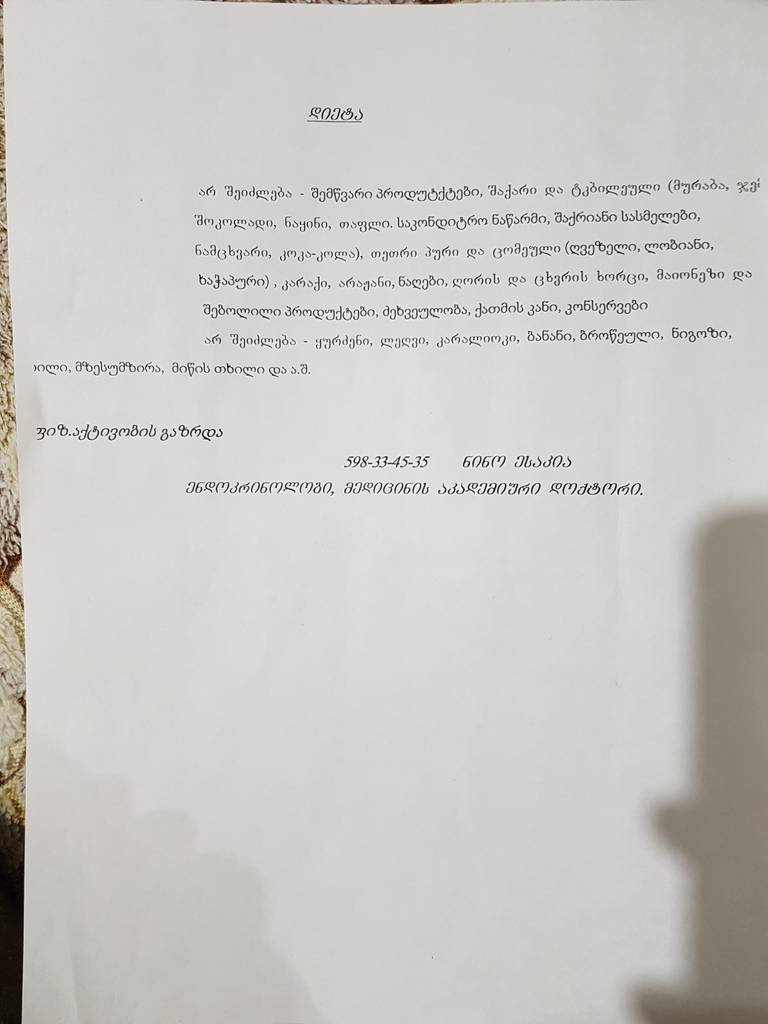 დიეტა
არ შეიძლება - შემწვარი პროდუტქტები, შაქარი და ტკბილეული (მურაბა,
შოკოლადი, ნაყინი, თაფლი. საკონდიტრო ნაწარმი, შაქრიანი სასმელები,
ნამცხვარი, კოკა-კოლა), თეთრი პური და ცომეული (ღვეზელი, ლობიანი,
ხაჭაპური) , კარაქი, არაჟანი, ნაღები, ღორის და ცხვრის ხორცი, მაიონეზი და
შებოლილი პროდუქტები, ძეხვეულობა, ქათმის კანი, კონსერვები
არ შეიძლება - ყურძენი, ლეღვი, კარალიოკი, ბანანი, ბროწეული, ნიგოზი,
მზესუმზირა, მიწის თხილი და ა.შ.
ფიზ.აქტივობის გაზრდა
598-33-45-35 ნინო ესაკია
ენდოკრინოლოგი, მედიცინის აკადემიური დოქტორი.